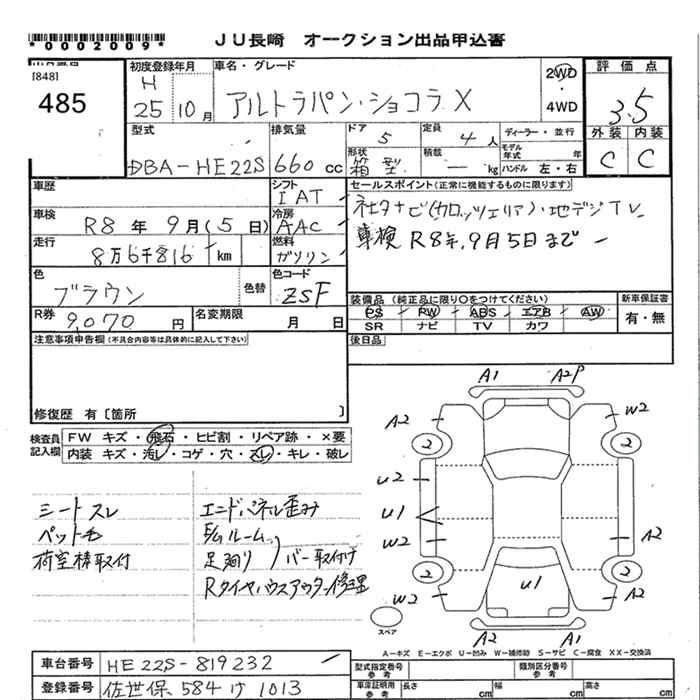 *0002009*
JU長崎 オークション出品申込書
[848]
485
初度登録年月
H
25 10月
車名・グレード
アルトラパン・ショコラ X
2WD
4WD
評価点
3.5
外装 内装
C C
型式
DBA-HE22S
排気量
660 cc
ドア 5
形状 箱型
定員 4人
積載 — kg
ディーラー・並行
モデル年式 年
ハンドル 左・右
車歴
シフト
IAT
車検
R8年9月(5日)
冷房
AAC
走行
8万6千816 km
燃料
ガソリン
色
ブラウン
色替
色コード
ZSF
R券
9,070円
名変期限
月 日
セールスポイント(正常に機能するものに限ります)
社外ナビ(カロッツェリア)・地デジTV
車検R8年9月5日まで
装備品(純正品に限り○をつけてください)
新車保証書
PS PW ABS エアB AW
有・無
SR ナビ TV カワ
後日品
注意事項申告欄(不具合内容等は具体的に記入して下さい)
修復歴 有[箇所 ]
検査員記入欄
FW キズ・飛石・ヒビ割・リペア跡・×要
内装 キズ・汚レ・コゲ・穴・スレ・キレ・破レ
シートスレ
ペット毛
荷室棒取付
エンドパネル歪み
Eルーム
足廻り
バー取付け
Rタイヤハウスアウター修理
A1 A2P
A2 W2
2 2
U2
U1
W2 A2
2 2
W2 U1
A2 A1
スペア
A−キズ E−エクボ U−凹み W−補修跡 S−サビ C−腐食 XX−交換済
車台番号 HE22S-819232
登録番号 佐世保584け1013
型式指定番号
参考
類別区分番号
参考
車庫証明用
参考
長さ cm
幅 cm
高さ cm